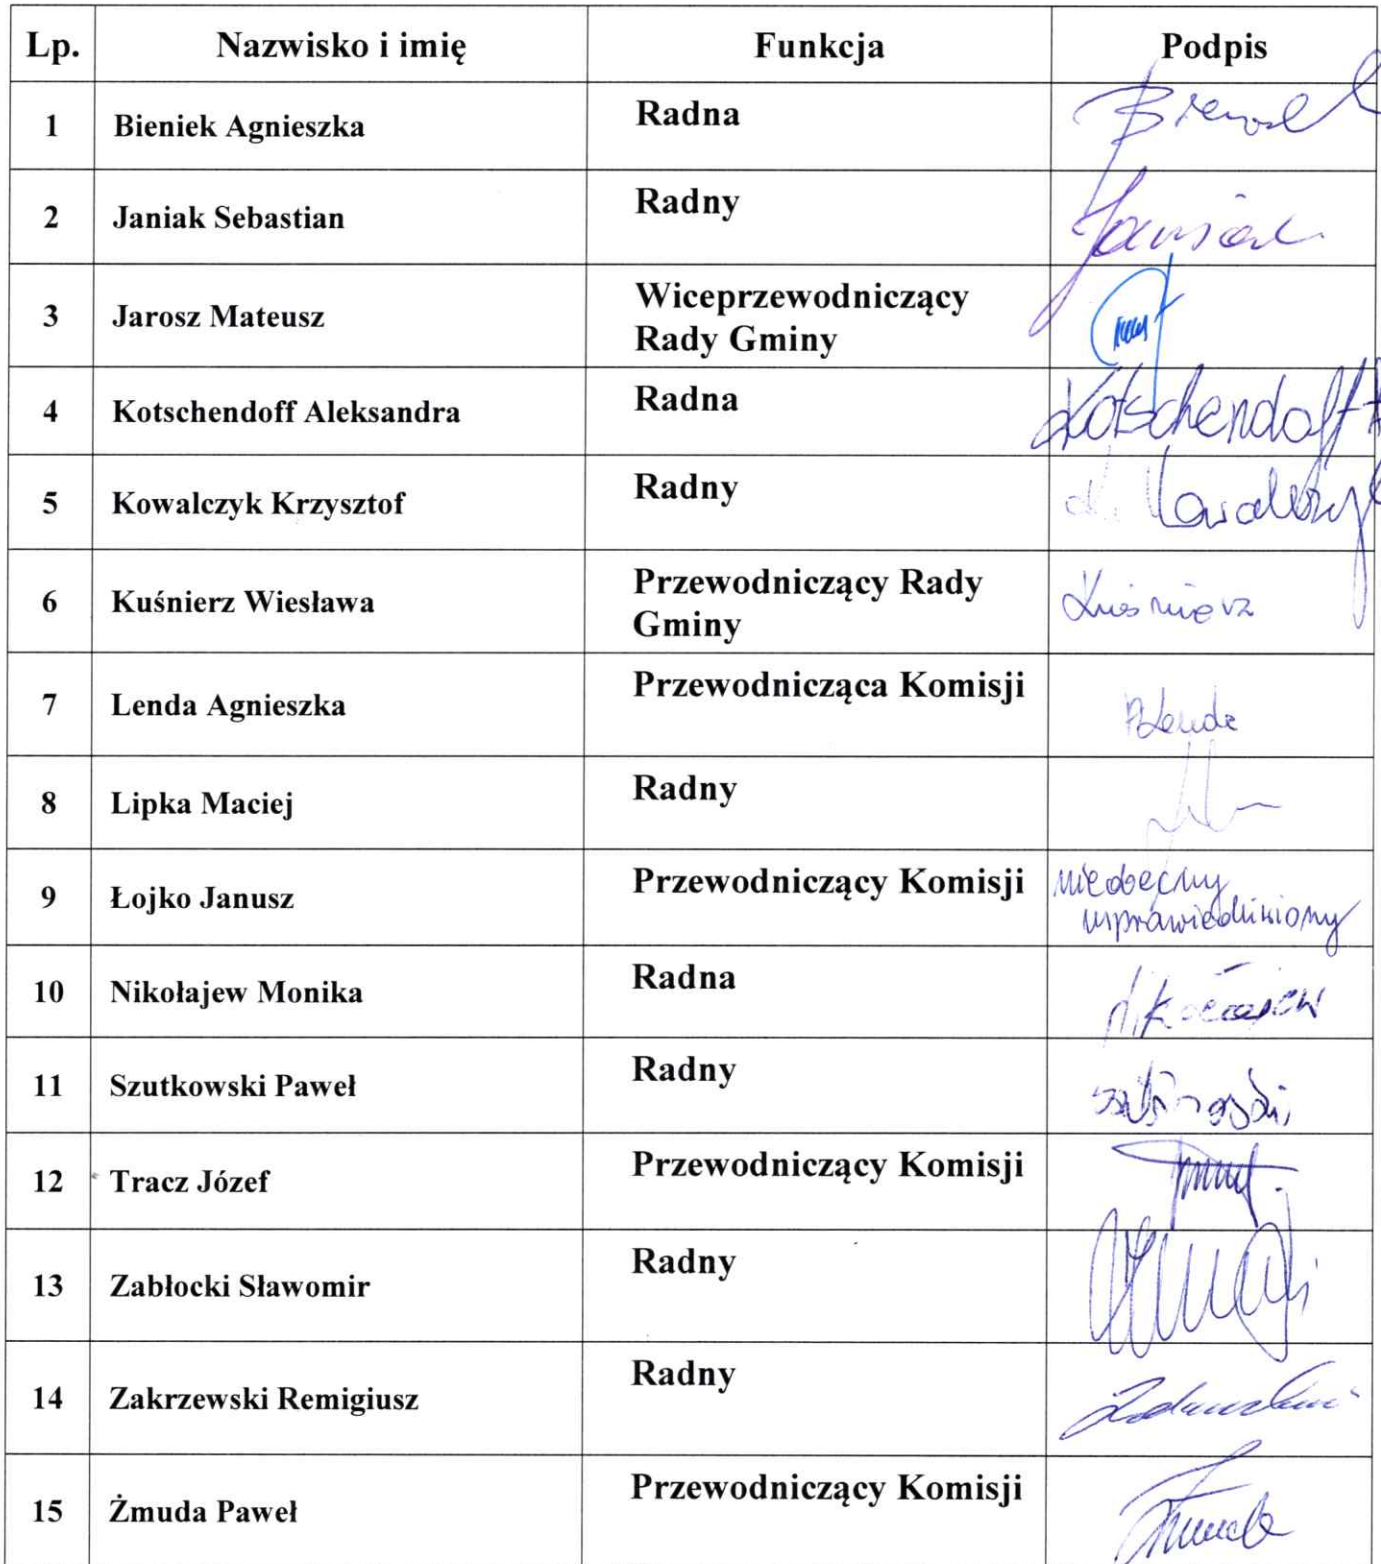 Lp. Nazwisko i imię Funkcja Podpis
1 Bieniek Agnieszka Radna
2 Janiak Sebastian Radny Janiak
3 Jarosz Mateusz Wiceprzewodniczący
Rady Gminy
4 Kotschendoff Aleksandra Radna Kotschendoff A
5 Kowalczyk Krzysztof Radny K. Kowalczyk
6 Kuśnierz Wiesława Przewodniczący Rady
Gminy Kuśnierz
7 Lenda Agnieszka Przewodnicząca Komisji ALenda
8 Lipka Maciej Radny
9 Łojko Janusz Przewodniczący Komisji nieobecny
usprawiedliwiony
10 Nikołajew Monika Radna Nikołajew
11 Szutkowski Paweł Radny
12 Tracz Józef Przewodniczący Komisji
13 Zabłocki Sławomir Radny
14 Zakrzewski Remigiusz Radny
15 Żmuda Paweł Przewodniczący Komisji Żmuda